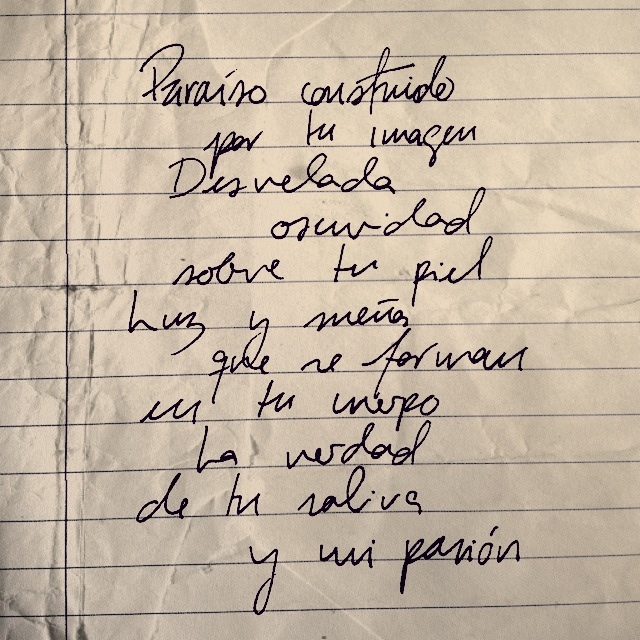 Paraíso construido
por tu imagen
Desvelada
oscuridad
sobre tu piel
Luz y sueña
que se forman
en tu cuerpo
La verdad
de tu saliva
y mi pasión